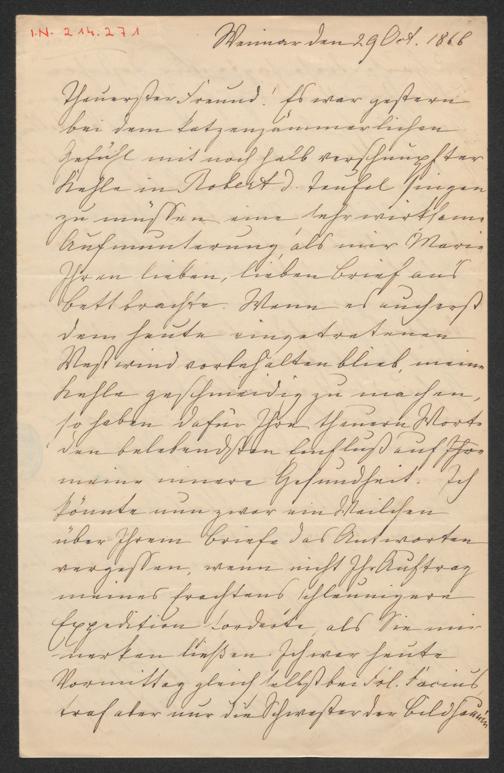 I.N. 214.271
Weimar den 29 Oct. 1866
Theuerster Freund! Es war gestern
bei dem katzenjämmerlichen
Gefühl mit noch halb verschnupfter
Kehle in Robert d. Teufel singen
zu müssen eine sehr wirksame
Aufmunterung als mir Marie
Ihren lieben, lieben Brief an's
Bett brachte. Wenn es auch erst
dem heute eingetretenen
Westwind vorbehalten blieb, meine
Kehle geschmeidig zu machen,
so haben dafür Ihre theuern Worte
den belebendsten Einfluß auf
meine innere Gesundheit. Ich
könnte nun zwar ein Weilchen
über Ihrem Briefe das Antworten
vergessen, wenn nicht Ihr Auftrag
meines Erachtens schleunigere
Expedition forderte als Sie mir
merken ließen. Ich war heute
Vormittag gleich selbst bei Frl. Facius,
traf aber nur die Schwester der Bildhauerin